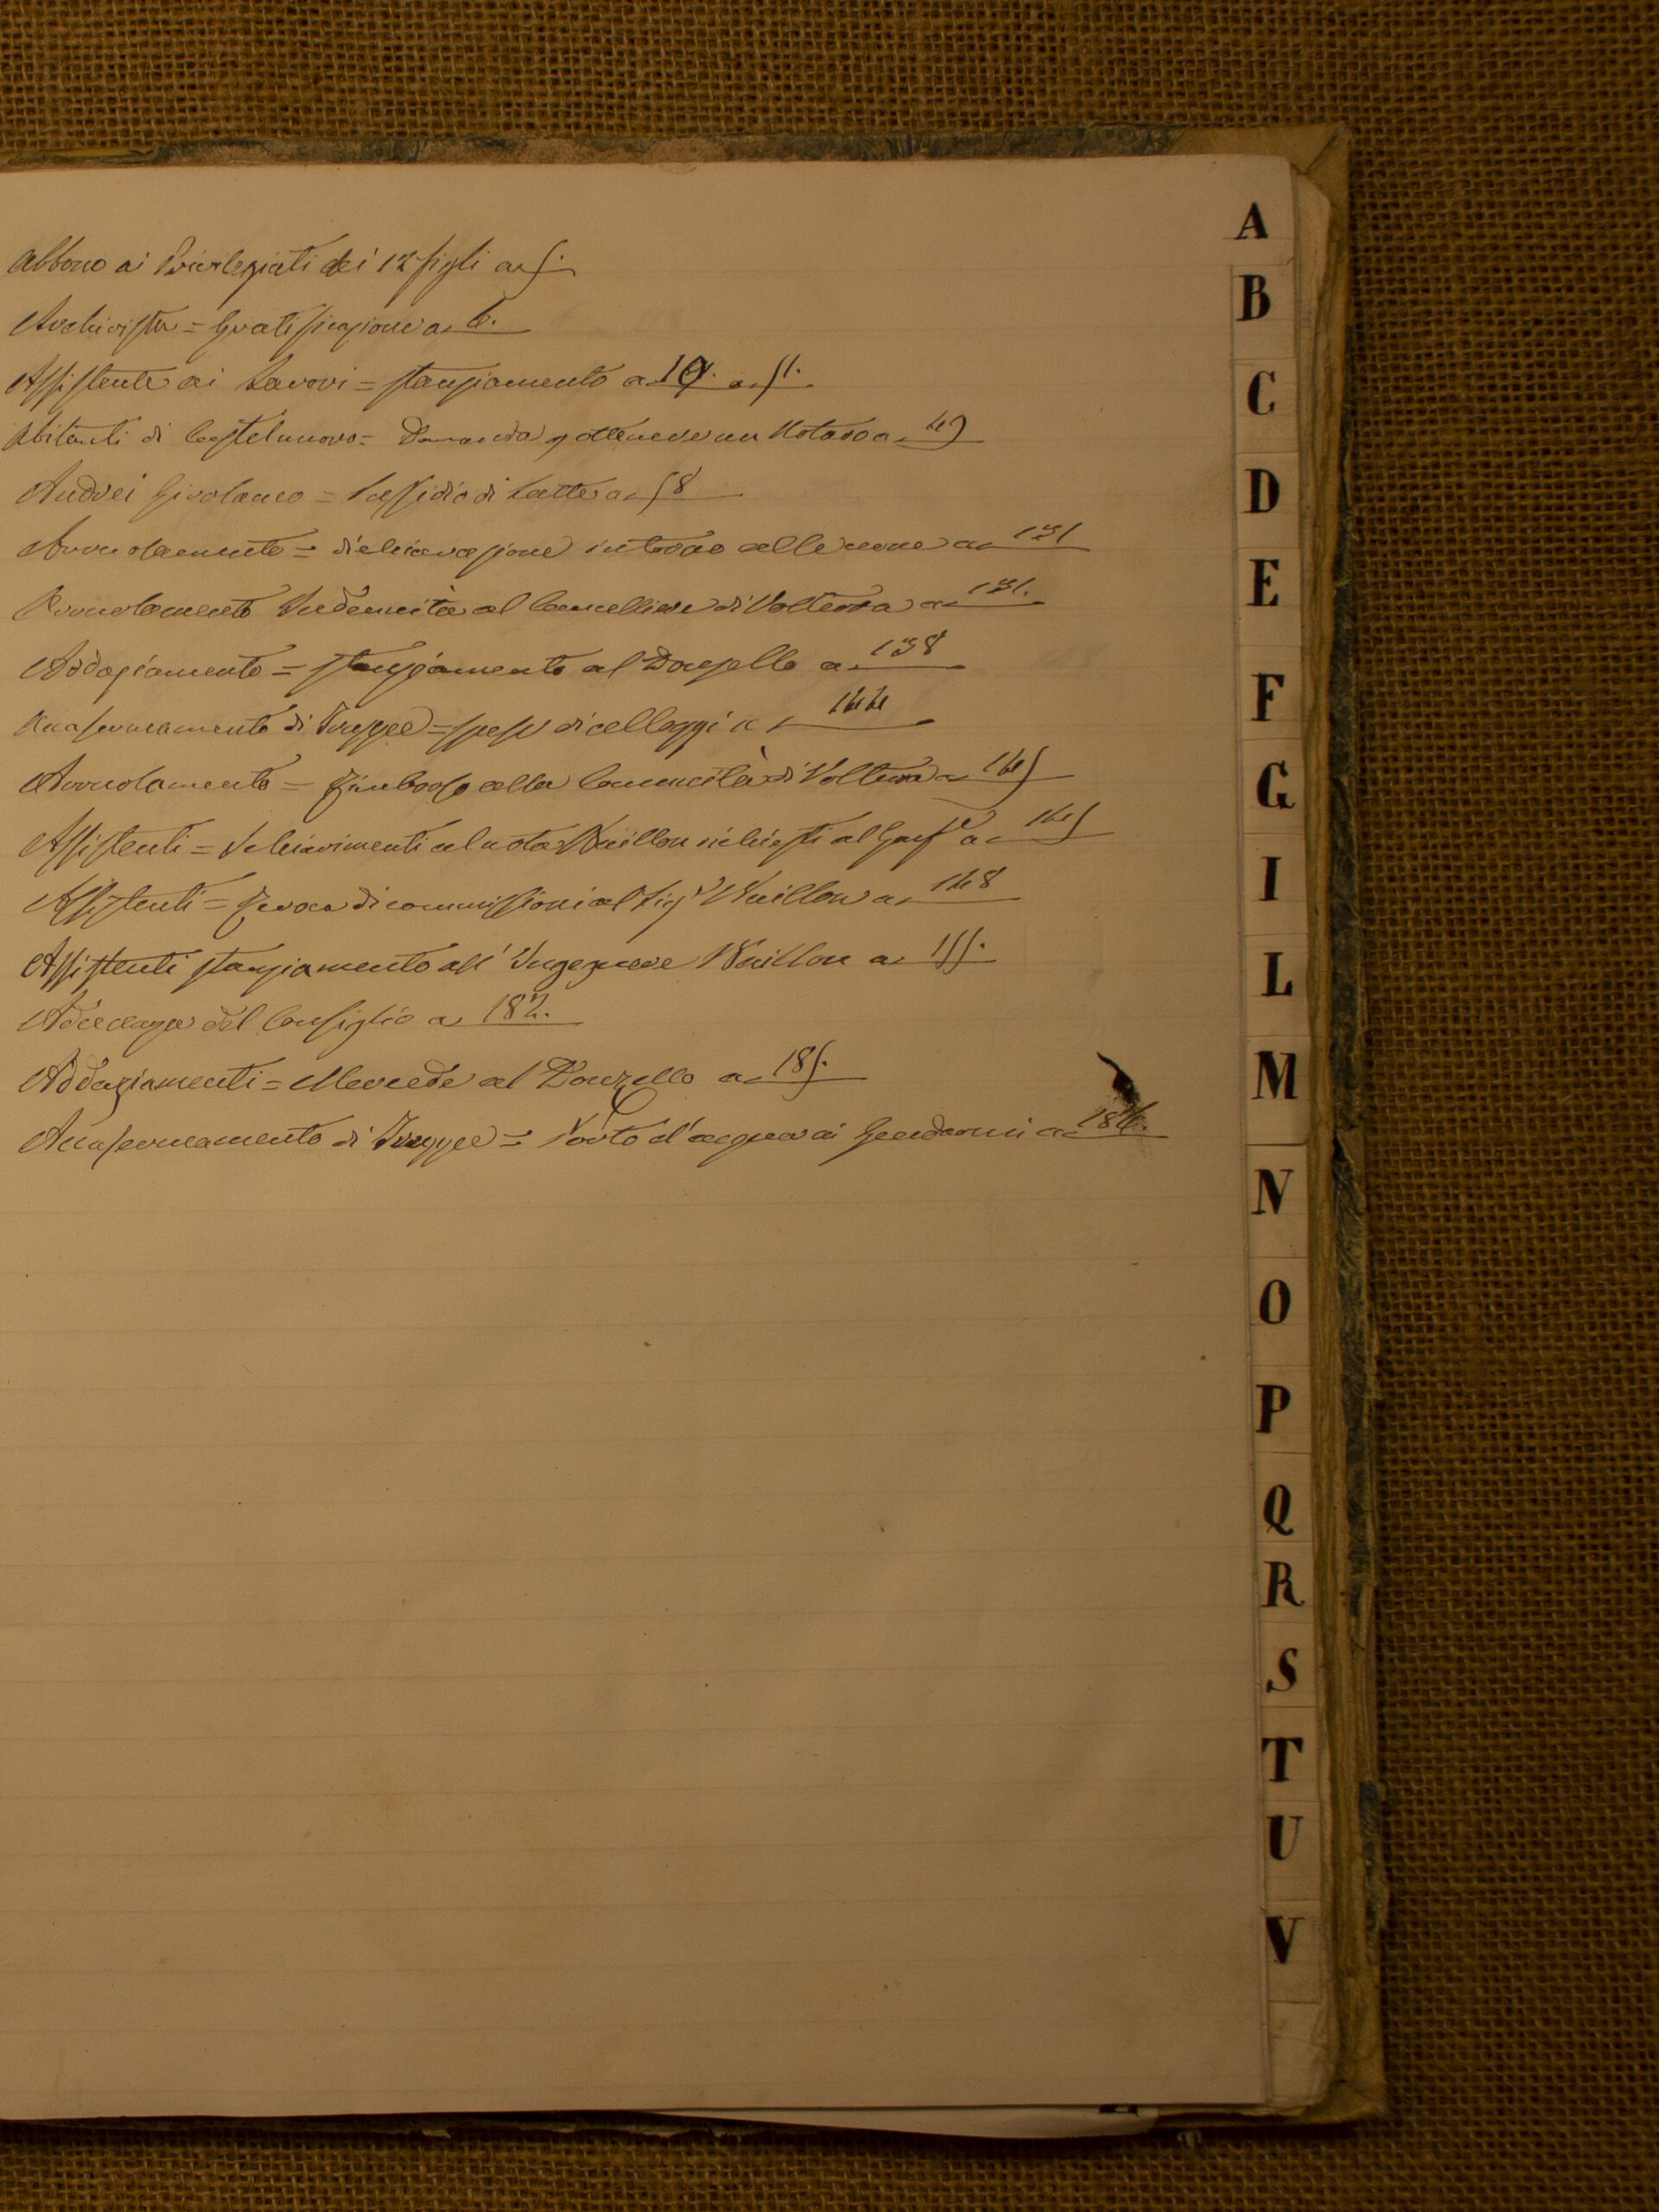 Abbono ai Privilegiati dei 12 figli a 5.
Archivista = Gratificazione a 6.
Assistente ai Lavori = stanziamento a 19. a 51.
Abitanti di Castelnuovo = Domanda p ottenere un Notaro a 49
Andrei Girolamo = Sussidio di Latte a 58
Arruolamento = dichiarazione intorno alle a 131
Arruolamento Indennità al Cancelliere di Volterra a 131.
Addaziamento = stanziamento al Donzello a 138
Accasermamento di Truppe = spese di alloggi a 144
Arruolamento = Rimborso alla Comunità di Volterra a 145
Assistenti = Schiarimenti al nota Wuillon richiesti al a 145
Assistenti = Revoca di commissioni al Sig.r Wuillon a 148
Assistenti stanziamento all' Ingegnere Wuillon a 155.
Adunanza del Consiglio a 182.
Addaziamenti = Mercede al Donzello a 185.
Accasermamento di Truppe = Porto d'acqua ai Gendarmi a 186.
A
B
C
D
E
F
G
I
L
M
N
O
P
Q
R
S
T
U
V